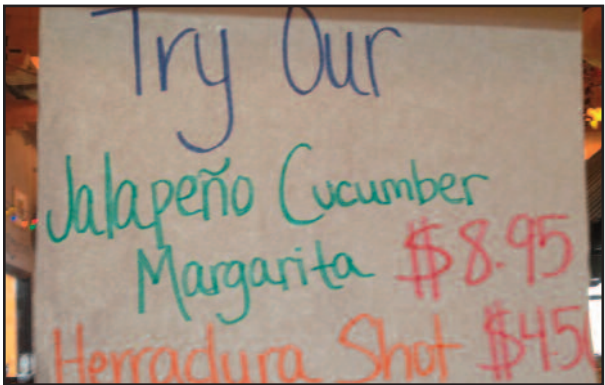 Try Our
Jalapeño Cucumber
Margarita $8.95
Herradura Shot $4.50